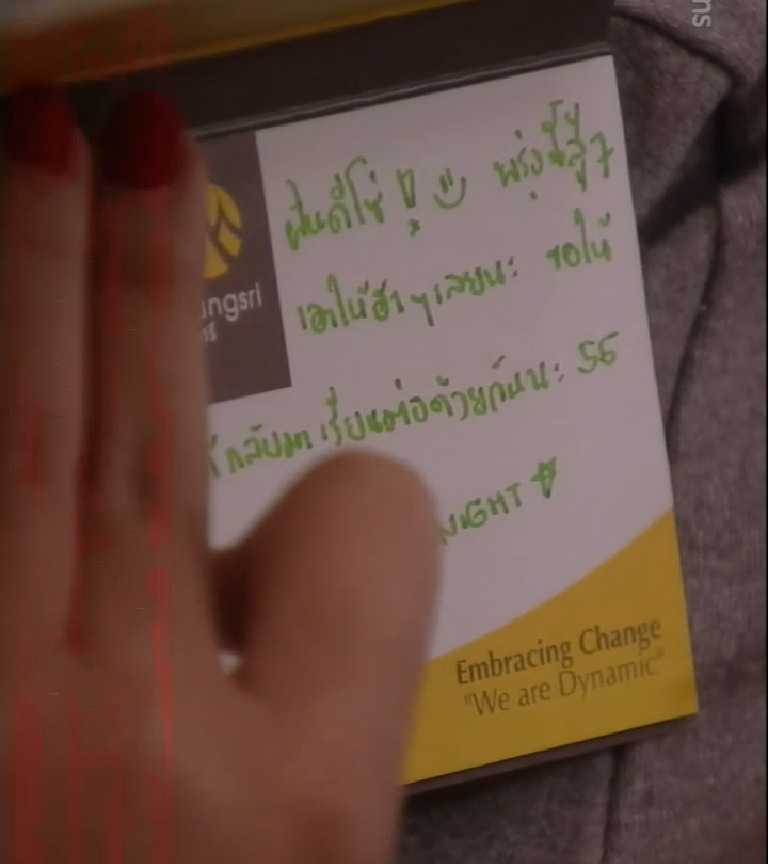 ฝันดีโช่ !! พรุ่งนี้สู้ๆ
เอาให้ฮา ๆ เลยนะ ขอให้
กลับมาเรียนต่อด้วยกันนะ 55
NIGHT
ngsri
Embracing Change
"We are Dynamic"